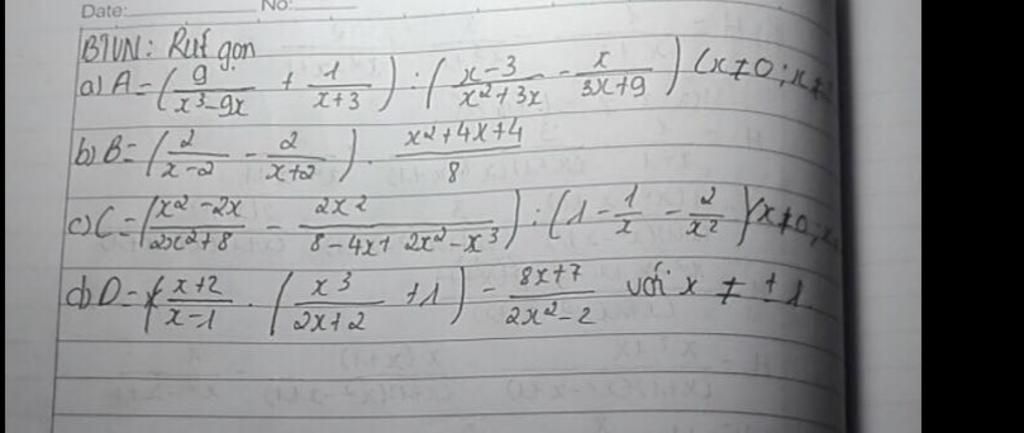 Date: No:
BTVN: Rút gọn
a) A = (9/(x³-9x) + 1/(x+3)) : ((x-3)/(x²+3x) - x/(3x+9)) (x ≠ 0; x ≠
b) B = (2/(x-2) - 2/(x+2)) . (x²+4x+4)/8
c) C = ((x²-2x)/(2x²+8) - 2x²/(8-4x+2x²-x³)) : (1 - 1/x - 2/x²) (x ≠ 0; x
d) D = (x+2)/(x-1) . (x³/(2x+2) + 1) - (8x+7)/(2x²-2) với x ≠ ±1